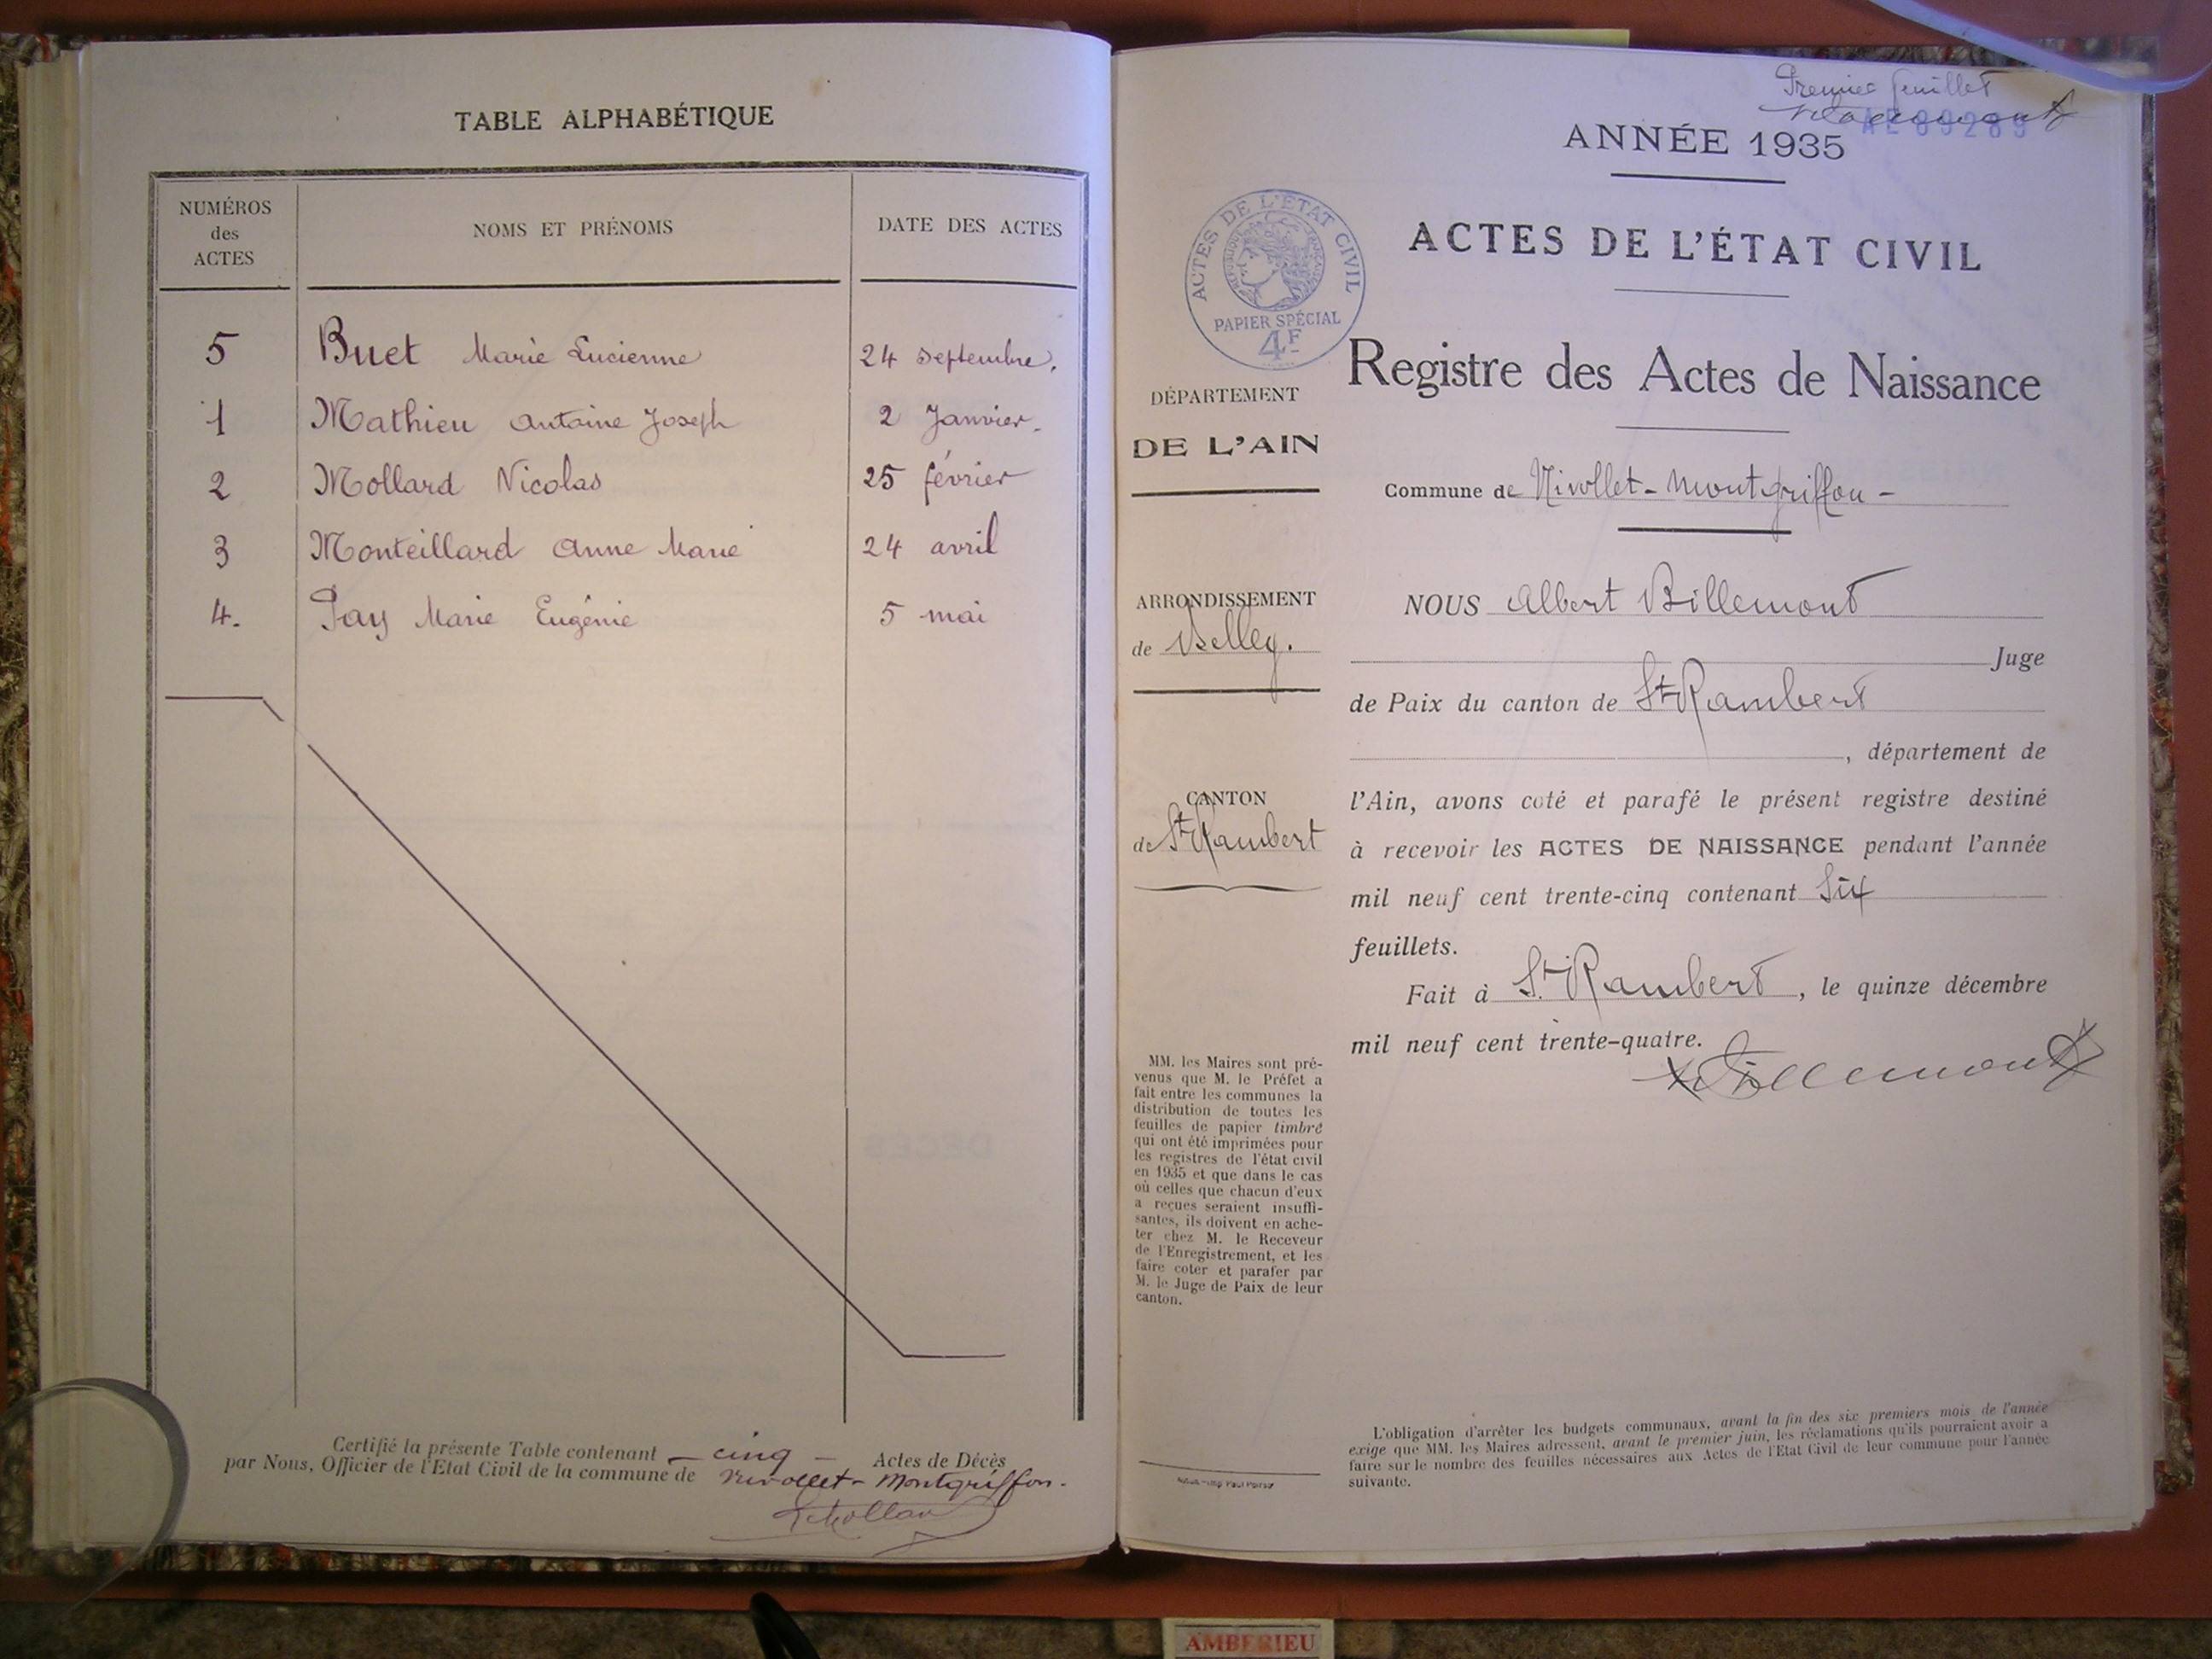 TABLE ALPHABÉTIQUE
NUMÉROS
des
ACTES
NOMS ET PRÉNOMS
DATE DES ACTES
5 Buet Marie Lucienne 24 septembre.
1 Mathieu Antoine Joseph 2 Janvier.
2 Mollard Nicolas 25 février
3 Monteillard Anne Marie 24 avril
4. Pay Marie Eugénie 5 mai
Certifié la présente Table contenant - cinq - Actes de Décès
par Nous, Officier de l'Etat Civil de la commune de Nivollet-Montgriffon.
Premier feuillet
ANNÉE 1935
ACTES DE L'ÉTAT CIVIL
ACTES DE L'ETAT CIVIL
REPUBLIQUE FRANÇAISE
PAPIER SPÉCIAL
4F
Registre des Actes de Naissance
DÉPARTEMENT
DE L'AIN
Commune de Nivollet-Montgriffon -
ARRONDISSEMENT
de Belley.
CANTON
de St Rambert
NOUS Albert Billemont
Juge
de Paix du canton de St Rambert
, département de
l'Ain, avons coté et parafé le présent registre destiné
à recevoir les ACTES DE NAISSANCE pendant l'année
mil neuf cent trente-cinq contenant Six
feuillets.
Fait à St. Rambert, le quinze décembre
mil neuf cent trente-quatre.
Billemont
MM. les Maires sont pré-
venus que M. le Préfet a
fait entre les communes la
distribution de toutes les
feuilles de papier timbré
qui ont été imprimées pour
les registres de l'état civil
en 1935 et que dans le cas
où celles que chacun d'eux
a reçues seraient insuffi-
santes, ils doivent en ache-
ter chez M. le Receveur
de l'Enregistrement, et les
faire coter et parafer par
M. le Juge de Paix de leur
canton.
L'obligation d'arrêter les budgets communaux, avant la fin des six premiers mois de l'année
exige que MM. les Maires adressent, avant le premier juin, les réclamations qu'ils pourraient avoir a
faire sur le nombre des feuilles nécessaires aux Actes de l'Etat Civil de leur commune pour l'année
suivante.
AMBERIEU